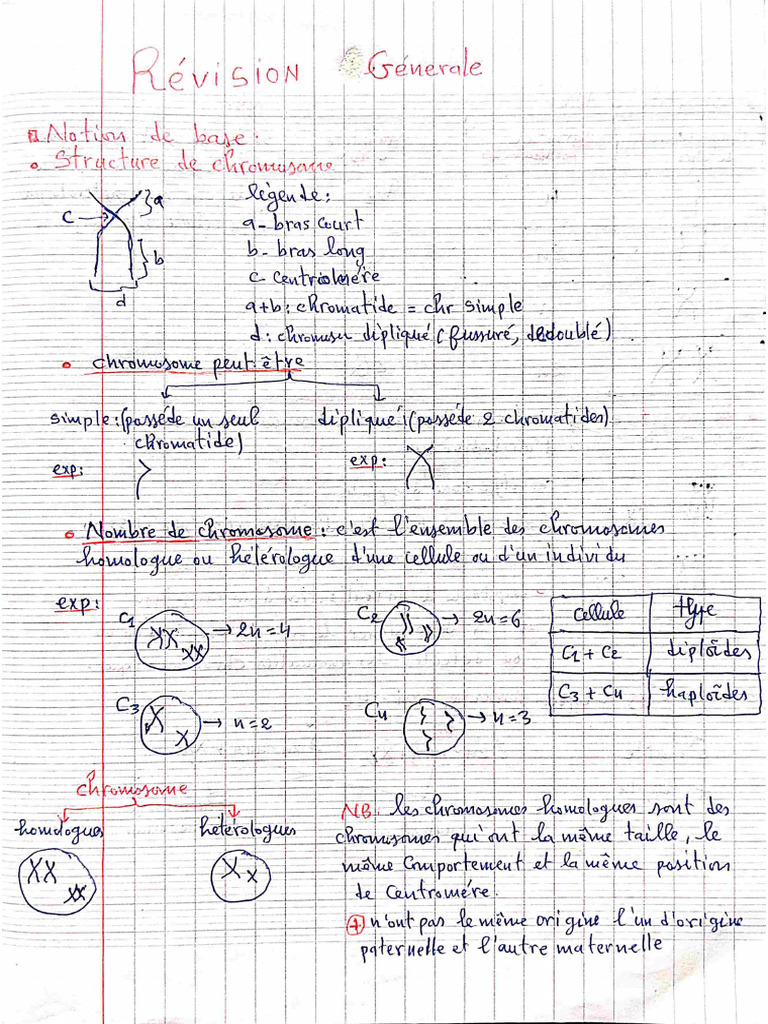 Révision Génerale
Notion de base.
• Structure de chromosome
légende:
a
c
b
d
a- bras court
b- bras long
c- centromére
a+b: chromatide = chr simple
d: chromoso dipliqué (fussuré, dedoublé)
• chromosome peut être
simple: (posséde un seul chromatide)
dipliqué: (posséde 2 chromatides)
exp:
exp:
• Nombre de chromosome: c'est l'ensemble des chromosomes
homologue ou hétérologue d'une cellule ou d'un individu
exp:
C1 → 2n=4
C2 → 2n=6
cellule type
C1 + C2 diploïdes
C3 + C4 haploïdes
C3 → n=2
C4 → n=3
chromosome
homologues
hétérologues
NB. les chromosomes homologues sont des
chromosomes qu'ont la même taille, le
même comportement et la même position
de centromére.
+ n'ont pas le même origine l'un d'origine
paternelle et l'autre maternelle